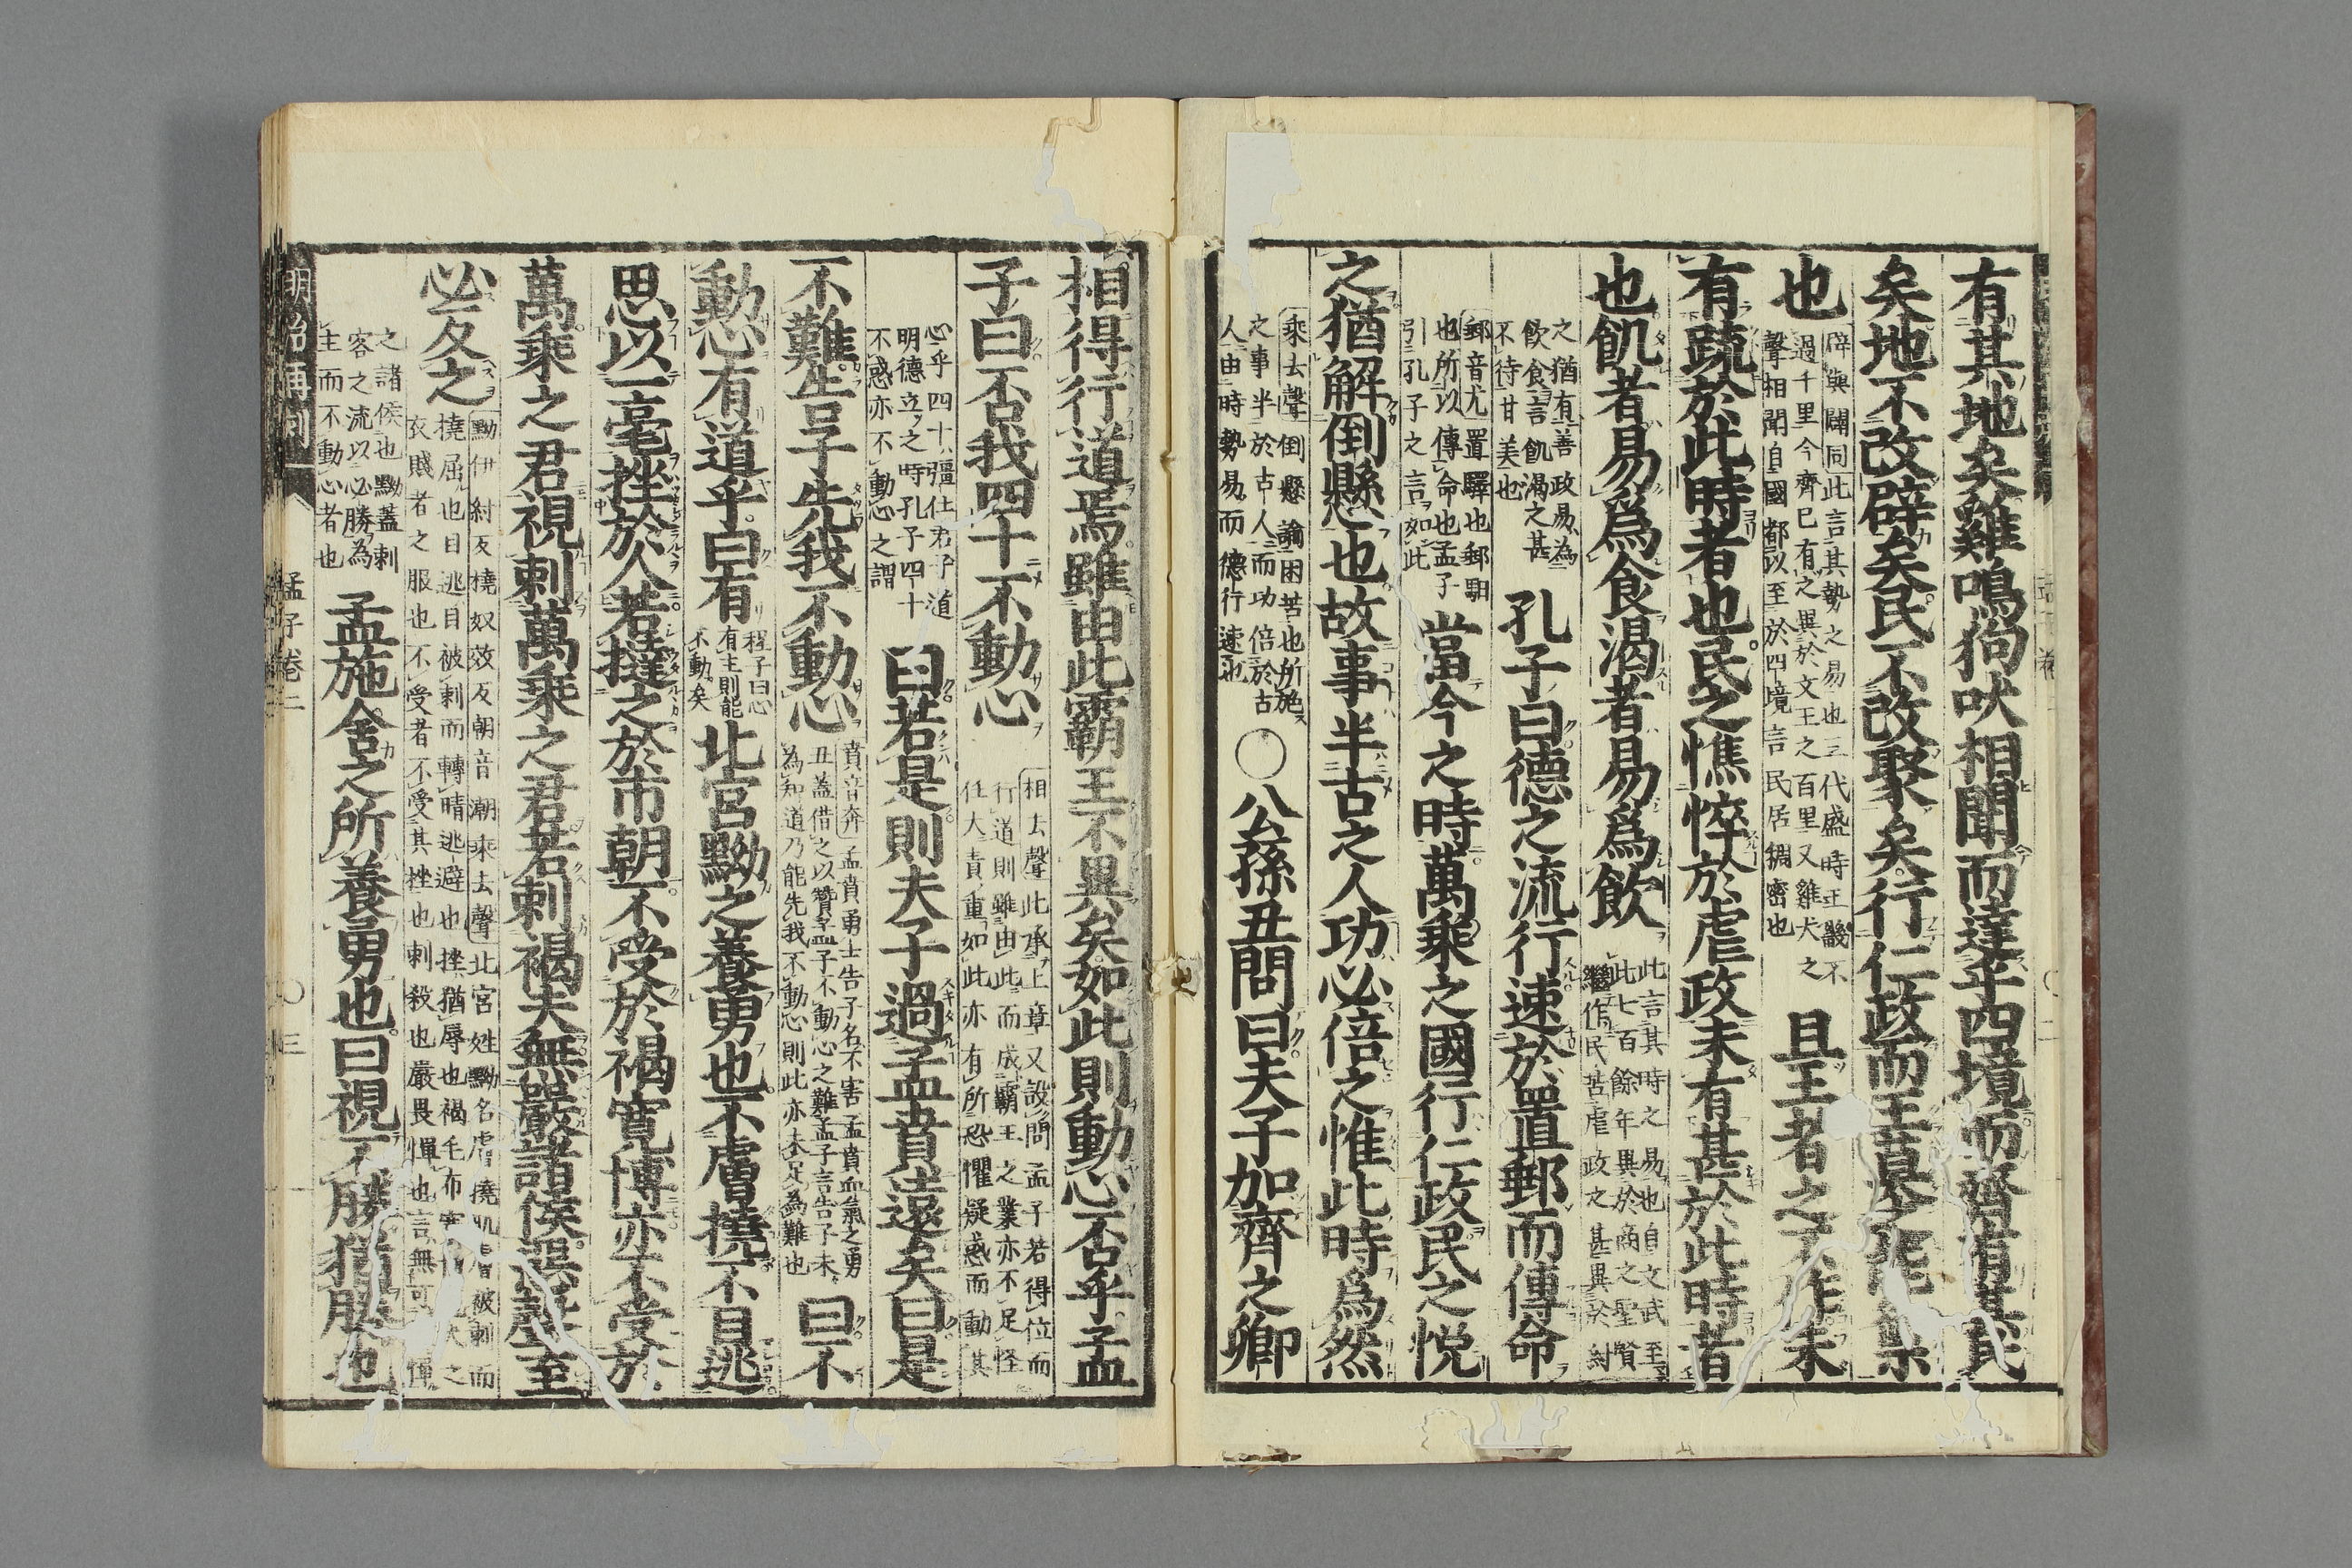 有其地矣雞鳴狗吠相聞而達乎四境而齊有其民
矣地不改辟矣民不改聚矣行仁政而王莫之能禦
也
辟與闢同此言其勢之易也三代盛時王畿不
過千里今齊已有之異於文王之百里又雞犬之
聲相聞自國都以至於四境言民居稠密也
且王者之不作未
有疏於此時者也民之憔悴於虐政未有甚於此時者
也飢者易爲食渴者易爲飲
此言其時之易也自文武至
此七百餘年異於商之聖賢
繼作民苦虐政之甚異於紂
之猶有善政易為
飲食言飢渴之甚
不待甘美也
孔子曰德之流行速於置郵而傳命
郵音尤置驛也郵馹
也所以傳命也孟子
引孔子之言如此
當今之時萬乘之國行仁政民之悅
之猶解倒懸也故事半古之人功必倍之惟此時爲然
乘去聲倒懸諭困苦也所施
之事半於古人而功倍於古
人由時勢易而德行速也
○公孫丑問曰夫子加齊之卿
相得行道焉雖由此霸王不異矣如此則動心否乎孟
子曰否我四十不動心
相去聲此承上章又設問孟子若得位而
行道則雖由此而成霸王之業亦不足怪
任大責重如此亦有所恐懼疑惑而動其
心乎四十彊仕君子道
明德立之時孔子四十
不惑亦不動心之謂
曰若是則夫子過孟賁遠矣曰是
不難告子先我不動心
賁音奔孟賁勇士告子名不害孟賁血氣之勇
丑蓋借之以贊孟子不動心之難孟子言告子未
為知道乃能先我不動心則此亦未足為難也
曰不
動心有道乎曰有
程子曰心
有主則能
不動矣
北宮黝之養勇也不膚撓不目逃
思以一毫挫於人若撻之於市朝不受於褐寬博亦不受於
萬乘之君視刺萬乘之君若刺褐夫無嚴諸侯惡聲至
必反之
黝伊紂反撓奴效反朝音潮乘去聲北宮姓黝名膚撓肌膚被刺而
撓屈也目逃目被刺而轉睛逃避也挫猶辱也褐毛布寬
衣賤者之服也不受者不受其挫也刺殺也嚴畏憚也言無可憚
之諸侯也黝蓋刺
客之流以必勝為
主而不動心者也
孟施舍之所養勇也曰視不勝猶勝也
明治再刻
孟子卷二
○三